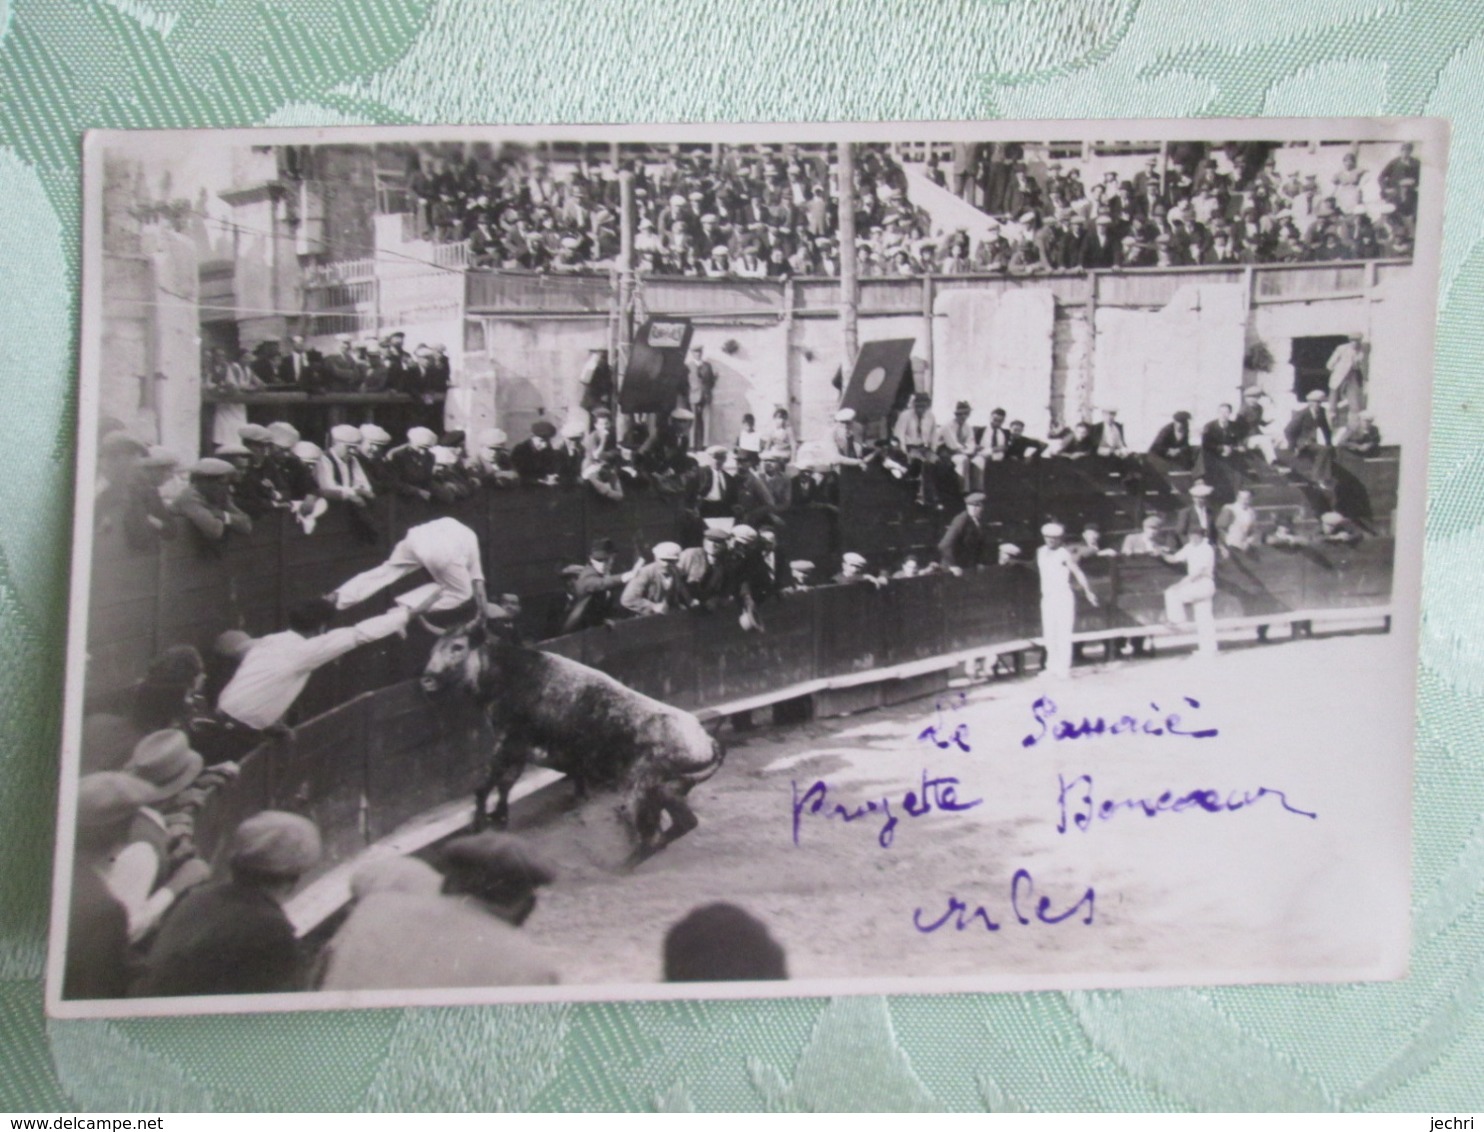 Le Sanraïé
Projette Boncoeur
Arles
delcampe.net
jechri